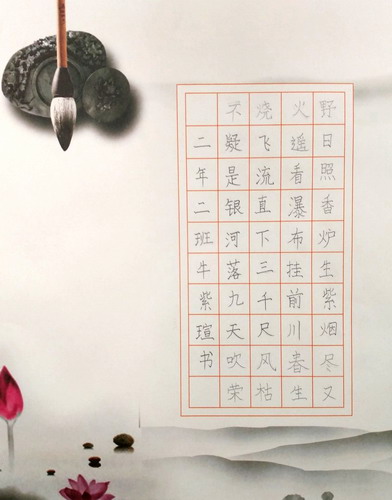 野日照香炉生紫烟尽又
火遥看瀑布挂前川春生
烧飞流直下三千尺风枯
不疑是银河落九天吹荣
二年二班牛紫瑄书